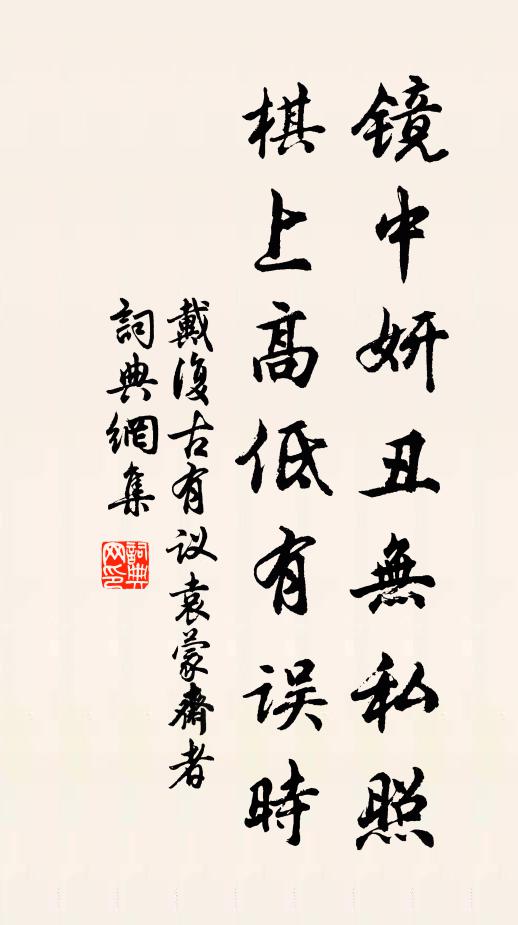 镜中妍丑無私照
棋上高低有误時
戴復古有议袁蒙齋者
詞典網集
詞典网印